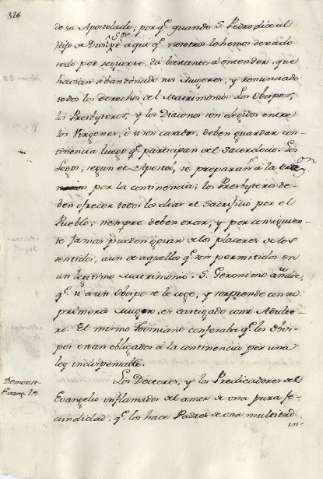 326
de su Apostolado, porq.e quando S. Pedro dice al
Hijo de Dios, ve aqui q.e nosotros lo hemos dexado
todo por seguirte, da bastante à entender, que
havian abandonado sus Mugeres, y renunciado
todos los derechos del Matrimonio. Los Obispos,
los Presbyteros, y los Diaconos son elegidos entre
los Virgenes, ò si son casados, deben guardar con-
tinencia luego q.e participan del Sacerdocio. Los
Legos, segun el Apostol, se preparan à la
por la continencia; los Presbyteros de-
ben ofrecer todos los dias el Sacrificio por el
Pueblo; siempre deben orar, y por consiguien-
te jamas pueden gozar de los placeres de los
sentidos, aun de aquellos q.e son permitidos en
un legitimo Matrimonio. S. Geronimo añade,
q.e si à un Obispo se le coge, y sorprende con su
primera Muger, es castigado como Adulte-
ro. El mismo Joviniano confesaba q.e los Obis-
pos estan obligados à la continencia por una
ley indispensable.
Los Doctores, y los Predicadores del
Evangelio inflamados del amor de una pura fe-
cundidad, q.e los hace Padres de una multitud
in-